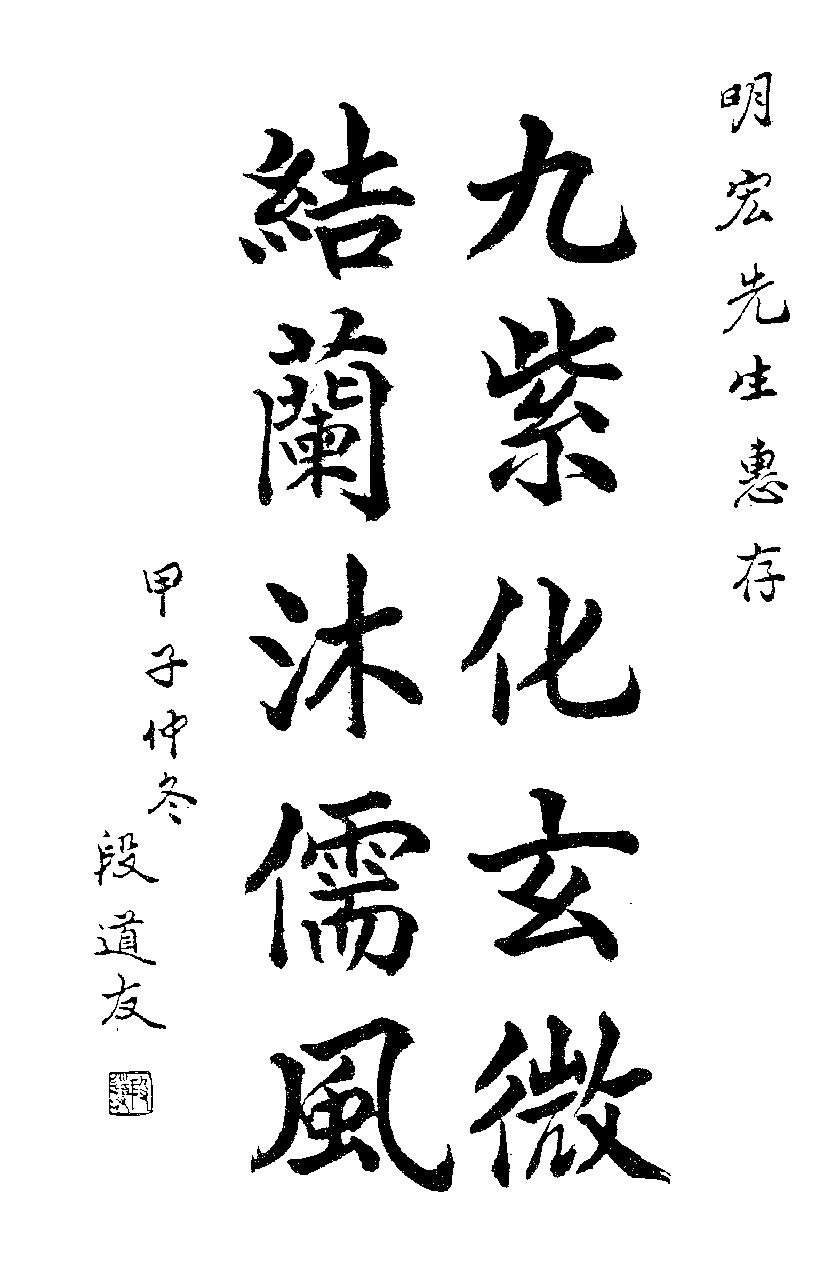 明宏先生惠存
九紫化玄微
結蘭沐儒風
甲子仲冬
段道友